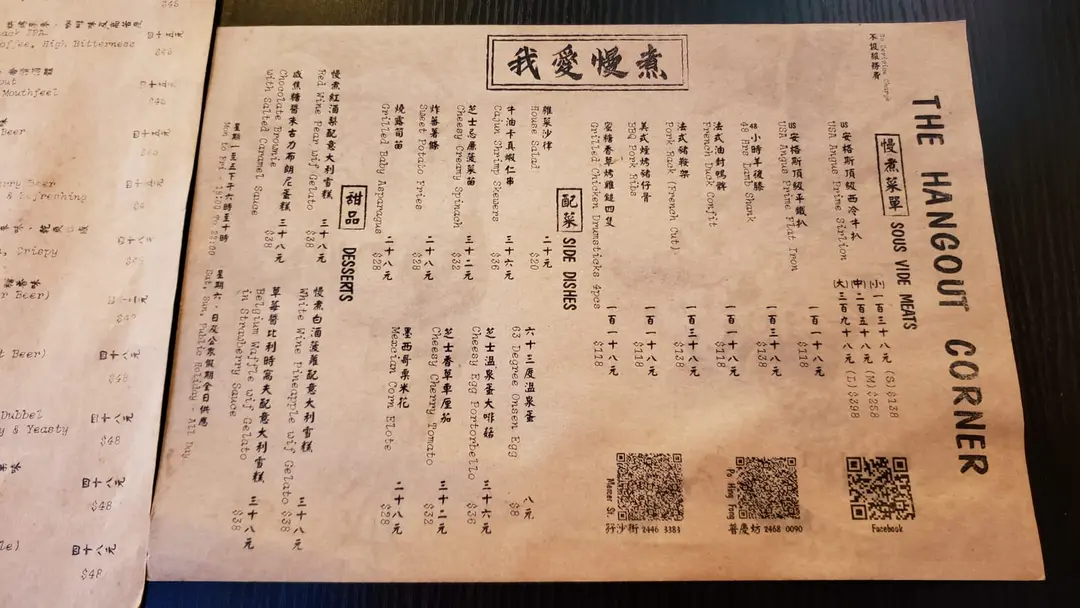 No Service Charge
不設服務費
THE HANGOUT CORNER
慢煮菜單 SOUS VIDE MEATS
US 安格斯頂級西冷牛扒
USA Angus Prime Sirlion
(小) 一百三十八元 (S)$138
(中) 二百五十八元 (M)$258
(大) 三百九十八元 (L)$398
US 安格斯頂級平鐵扒 一百一十八元
USA Angus Prime Flat Iron $118
48 小時羊後膝 一百三十八元
48 Hrs Lamb Shank $138
法式油封鴨髀 一百一十八元
French Duck Confit $118
法式豬鞍架 一百三十八元
Pork Rack (French Cut) $138
美式煙烤豬仔骨 一百一十八元
BBQ Pork Ribs $118
蜜糖香草烤雞鎚四隻 一百一十八元
Grilled Chicken Drumsticks 4pcs $118
我愛慢煮
配菜 SIDE DISHES
雜菜沙律 二十元
House Salad $20
牛油卡真蝦仁串 三十六元
Cajun Shrimp Skewers $36
芝士忌廉菠菜苗 三十二元
Cheesy Creamy Spinach $32
炸蕃薯條 二十八元
Sweet Potato Fries $28
燒露筍苗 二十八元
Grilled Baby Asparagus $28
六十三度溫泉蛋 八元
63 Degree Onsen Egg $8
芝士溫泉蛋大啡菇 三十六元
Cheesy Egg Portorbello $36
芝士香草車厘茄 三十二元
Cheesy Cherry Tomato $32
墨西哥粟米花 二十八元
Mexcian Corn Elote $28
甜品 DESSERTS
慢煮紅酒梨配意大利雪糕 三十八元
Red Wine Pear wif Gelato $38
咸焦糖醬朱古力布朗尼蛋糕 三十八元
Chocolate Brownie $38
with Salted Caramel Sauce
慢煮白酒菠蘿配意大利雪糕 三十八元
White Wine Pineapple wif Gelato $38
草莓醬比利時窩夫配意大利雪糕 三十八元
Belgium Waffle wif Gelato $38
in Strawberry Sauce
星期一至五下午六時至十時
Mon to Fri - 18:00 To 22:00
星期六，日及公眾假期全日供應
Sat, Sun, Public Holiday - All Day
Facebook
Po Hing Fong
普慶坊 2468 0090
Mercer St.
孖沙街 2446 3383
$46
四十五元
High Bitterness
四十五元
Mouthfeel
Beer
四十八元
Beer
Refreshing
四十八元
Crispy
Beer)
Beer)
四十八元
$48
Dubbel
& Yeasty
四十八元
$48
四十八元
$48
四十八元
$48